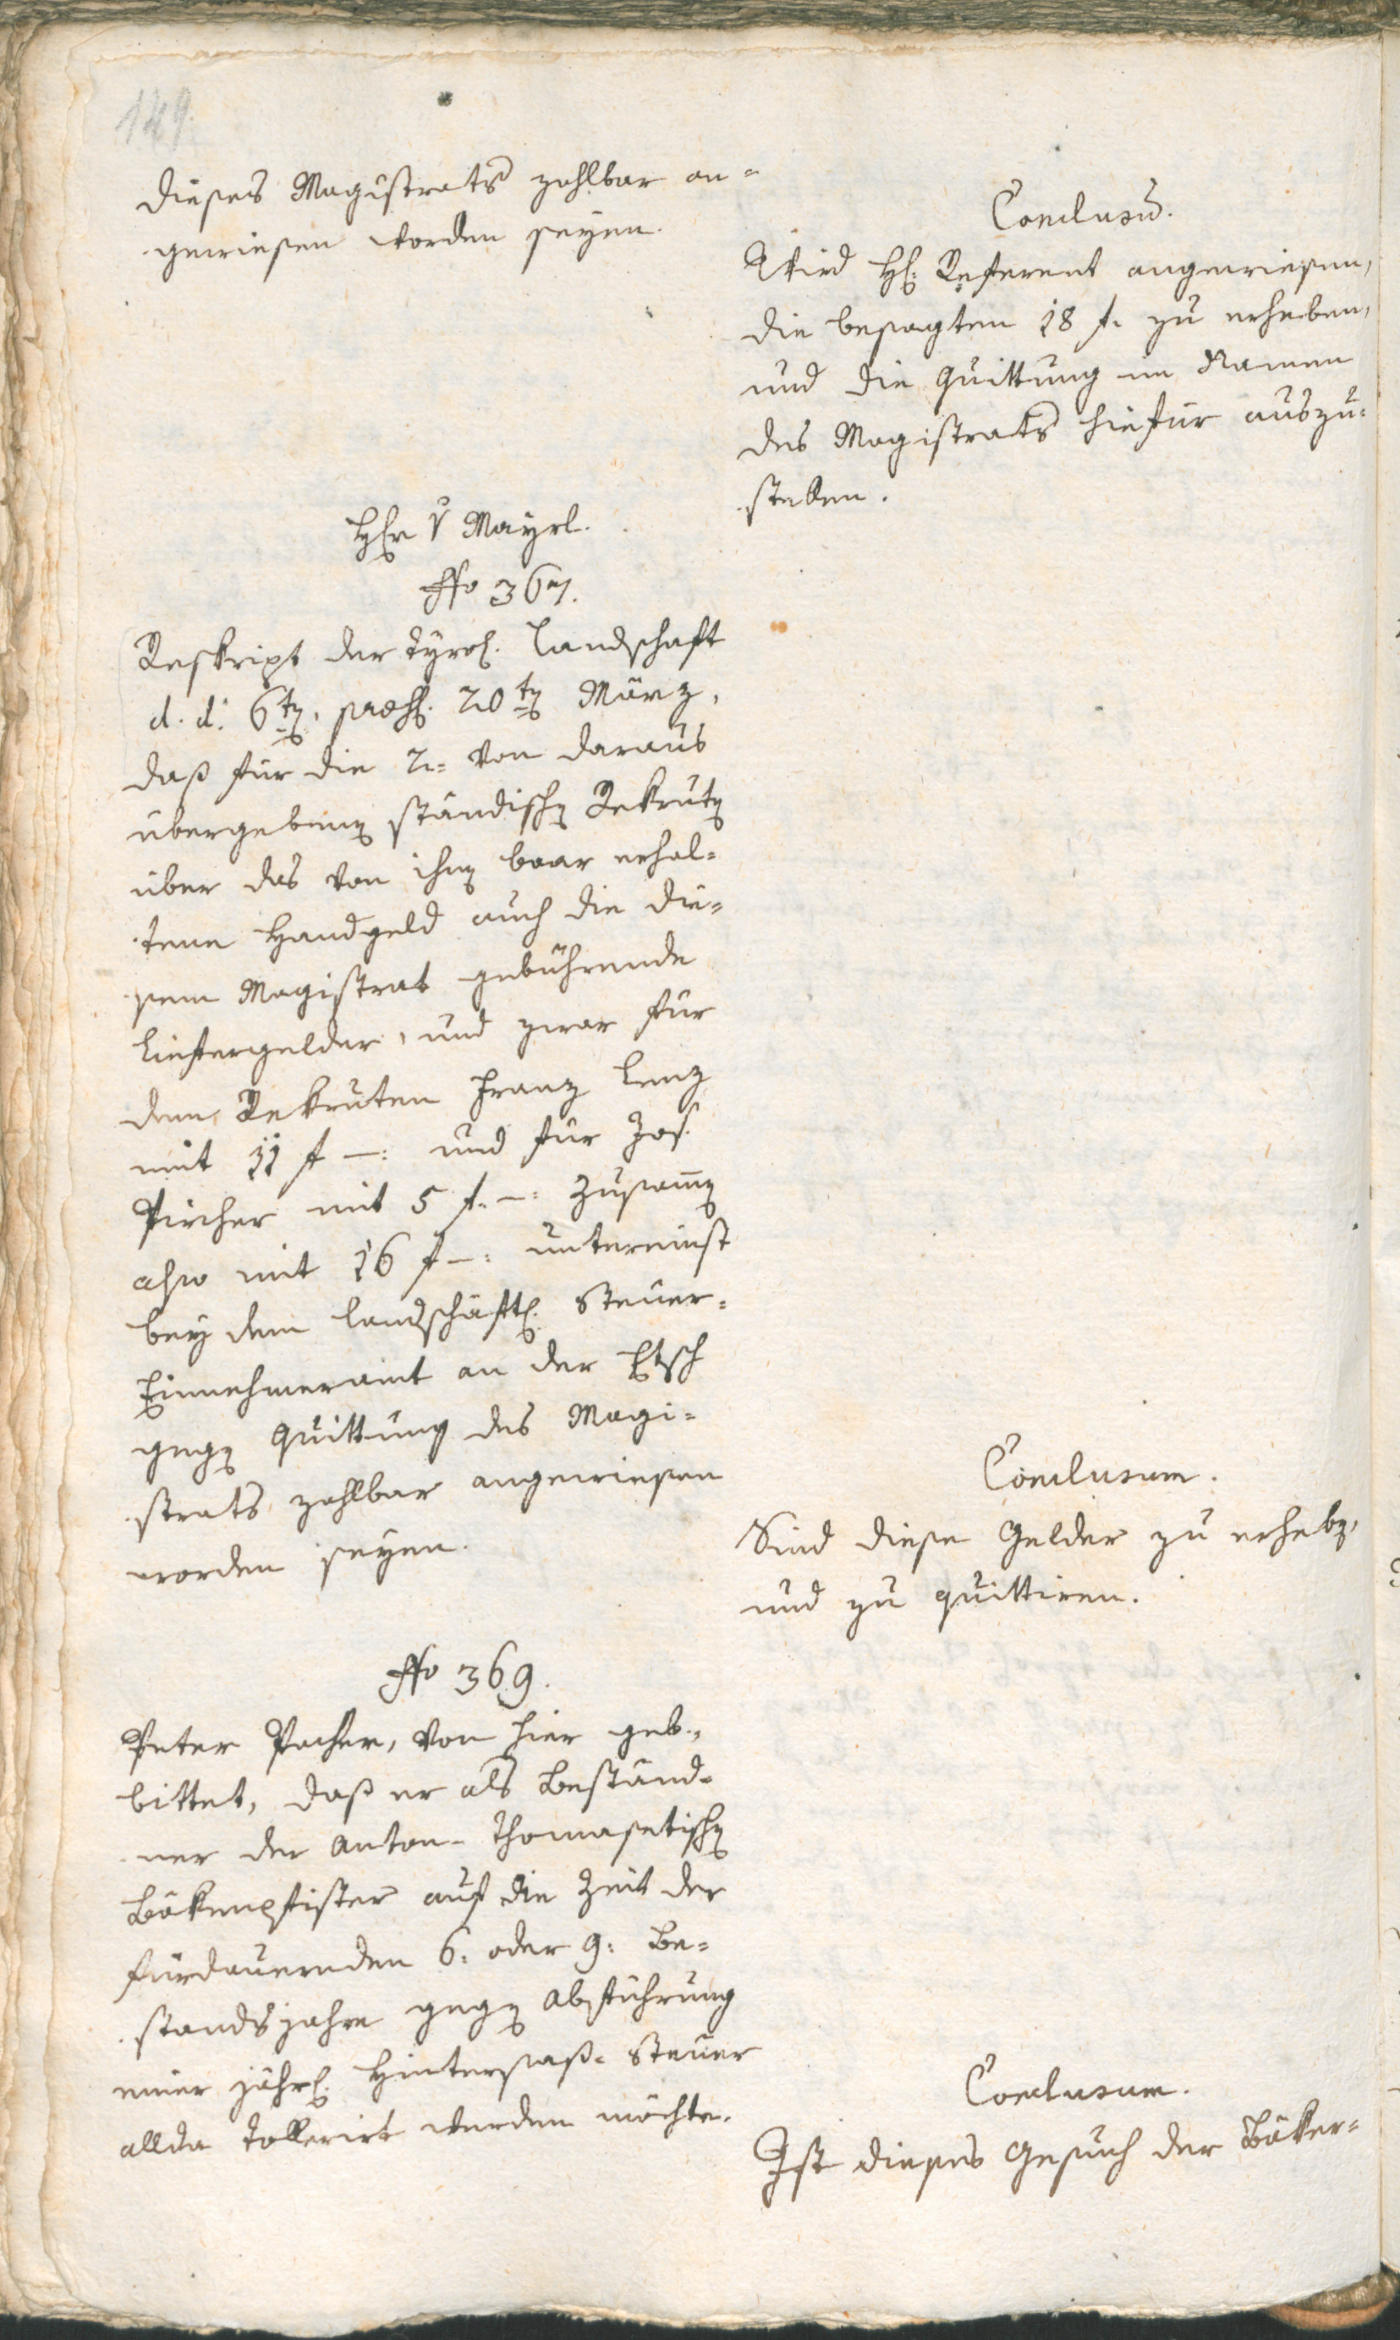 149.
dieses Magistrats zahlbar an=
gewiesen worden seyen.
Conclusū.
Wird H: Referent angewiesen,
die besagten 18 f. zu erheben,
und die Quittung im Namen
des Magistrats hiefür auszu=
stellen.
H v Mayrl.
No 367.
Reskript der Tyrol. Landschaft
d. d. 6ten, praes. 20ten März,
daß für die 2= von daraus
übergebenen ständischen Rekruten
über das von ihnen baar erhal=
tene Handgeld auch die die=
sem Magistrat gebührende
Liefergelder, und zwar für
den Rekruten Franz Lenz
mit 11 f –: und für Jos.
Pircher mit 5 f. –: zusamen
also mit 16 f –: untereinst
bey dem landschäftl. Steuer=
Einnehmeramt an der Etsch
gegen Quittung des Magi=
strats zahlbar angewiesen
worden seyen.
Conclusum.
Sind diese Gelder zu erheben,
und zu quittiren.
No 369.
Peter Pacher, von hier geb.,
bittet, daß er als Beständ=
ner der Anton= Thomasetischen
Bäkenpfister auf die Zeit der
fürdauernden 6: oder 9: Be=
standsjahre gegen Abführung
einer jährl. Hintersaß= Steuer
allda tollerirt werden möchte.
Conclusum.
Ist dieses Gesuch der Bäker=